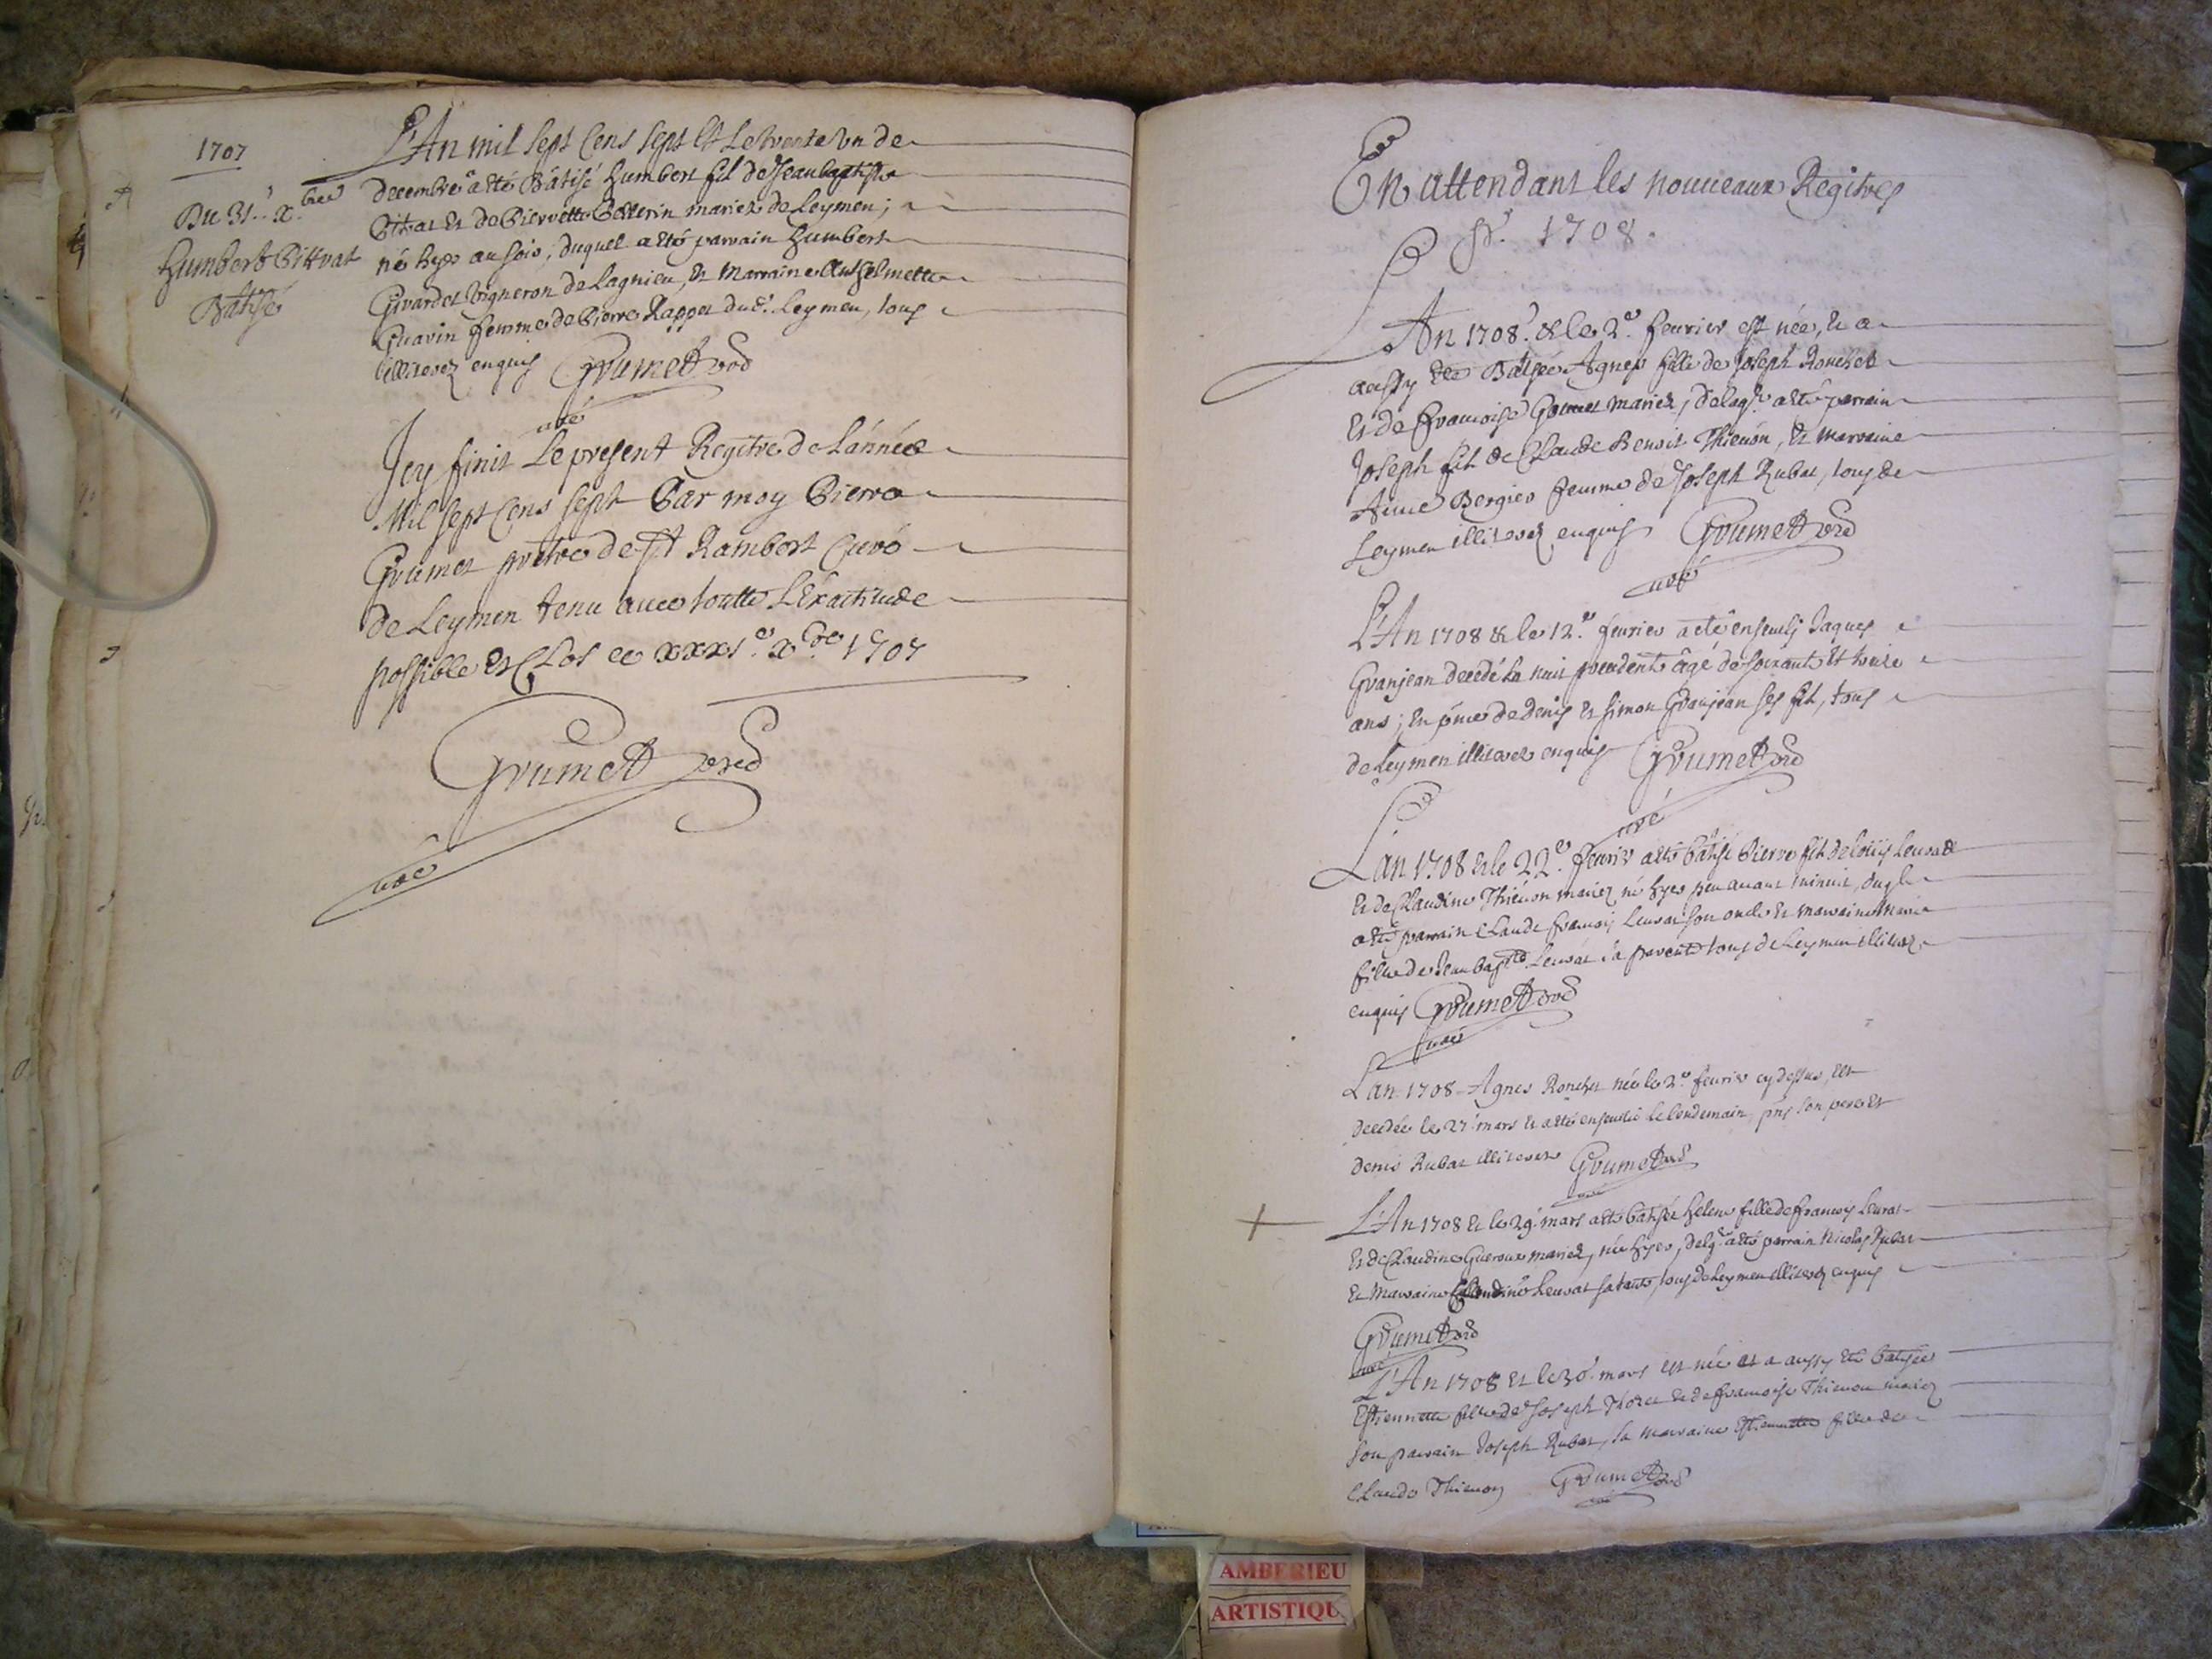 1707
Du 31.e x.bre
Humbert Pittrat
Batisé
L'An mil sept Cens sept Et Le trente Un de
decembre a esté Bâtisé humbert fil de Jean baptiste
Pitrat Et de Pierrette Pellerin mariez de Leymen;
né hyer au soir, duquel a esté parrain humbert
Girardet Vigneron de Lagnieu, Et Marraine Anthelmette
Guavin femme de Pierre Rappet dud.t Leymen, tous
illiterez enquis Grumet
curé
Icy finit Le present Regitre de L'année
Mil sept Cens sept Par moy Pierre
Grumet prêtre de St Rambert Curé
de Leymen tenu avec toutte L'Exactitude
possible Et Clos ce xxxi.e x.bre 1707
Grumet
curé
En attendant les nouueaux Regitres
pr. 1708.
L'An 1708. & le 2.e feurier est née, Et a
aussy été Batisée Agnes fille de Joseph Ronchet
Et de francoise Gonnet mariez, de laq.le a esté parrain
Joseph fil de Claude Benoit Thieuon, Et marraine
Aimé Bergier femme de Joseph Rubat, tous de
Leymen illiterez enquis Grumet
curé
L'An 1708 & le 12.e feurier a eté enseueli Jaques
Granjean decedé La nuit precedente âgé de soixante Et treize
ans; En p̃nce de Denis Et Simon Granjean ses fil, tous
de Leymen illiterez enquis Grumet
curé
L'an 1708 et le 22.e feurier a eté batisé Pierre fil de Loüis Leurat
Et de Claudine Thieuon mariez né hyer peu auant minuit, duq.l
a été parrain Claude francois Leurat son oncle Et marraine Marie
fille de Jean bap.te Leurat sa parente tous de Leymen illiterez
enquis Grumet
curé
L'an 1708 Agnes Ronchet née le 2.e feurier cy dessus, Est
decedée le 27 mars Et a eté enseuelie le lendemain, p̃nt son pere Et
Denis Rubat illiterez Grumet
curé
L'An 1708 Et le 29.e mars a eté batisée helene fille de francois Leurat
Et de Claudine Gueroux mariez, née hyer, de laq.le a eté parrain Nicolas Rubat
Et Marraine Claudine Leurat sa tante, tous de Leymen illiterez enquis
Grumet
curé
L'An 1708 Et le 30.e mars est née et a aussy eté batisée
Estiennette fille de Joseph Et de francoise Thieuon mariez
son parrain Joseph Rubat, la marraine Estiennette fille de
Claude Thieuon Grumet
curé
AMBERIEU
ARTISTIQU